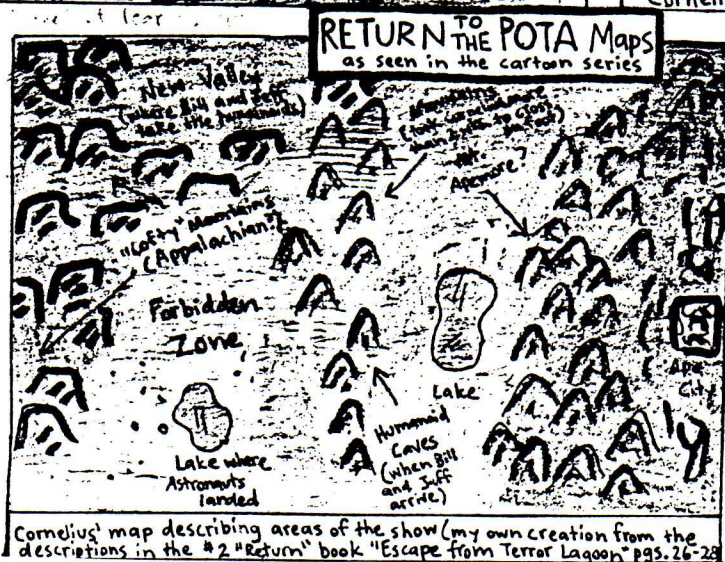 Cornel
RETURN TO THE POTA Maps
as seen in the cartoon series
New Valley
(where Bill and Jeff
take the humanoids)
Mountains
(take
than
to cross
Mt.
Apemore?
"Lofty" Mountains
(Appalachian?)
Forbidden
Zone
Lake
Ape
City
Lake where
Astronauts
landed
Humanoid
Caves
(when Bill
and Jeff
arrive)
Cornelius' map describing areas of the show (my own creation from the
descriptions in the #2 "Return" book "Escape from Terror Lagoon" pgs. 26-28